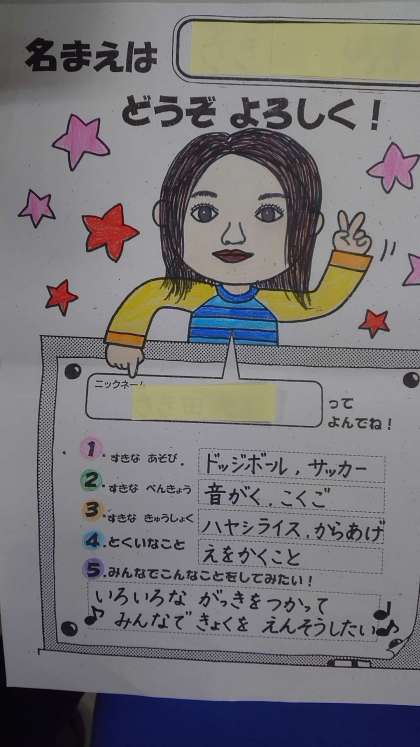 名まえは
どうぞ よろしく!
ニックネーム
って
よんでね!
1. すきな あそび.
ドッジボール, サッカー
2. すきな べんきょう
音がく, こくご
3. すきな きゅうしょく
ハヤシライス, からあげ
4. とくいなこと
えをかくこと
5. みんなでこんなことをしてみたい!
いろいろな がっきをつかって
みんなで きょくを えんそうしたい